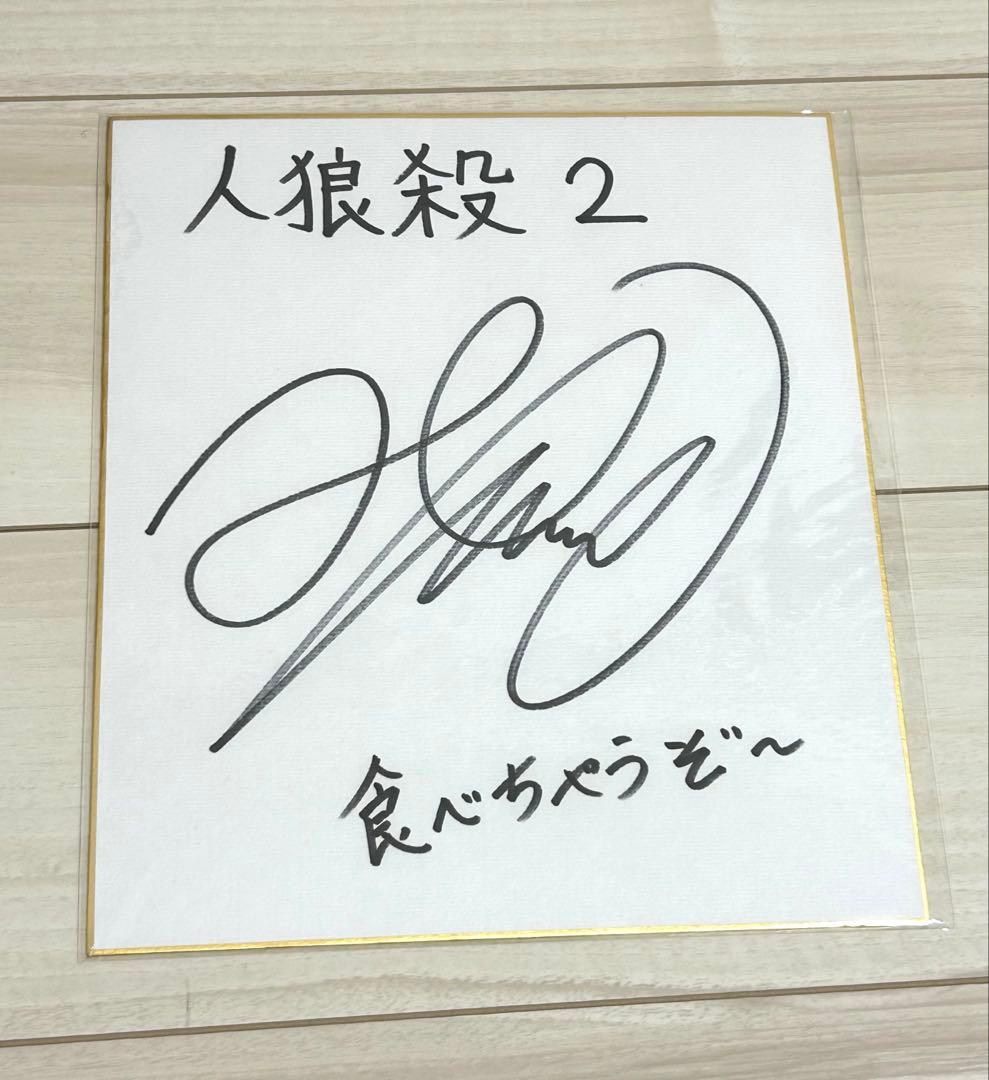 人狼殺 2
食べちゃうぞ〜